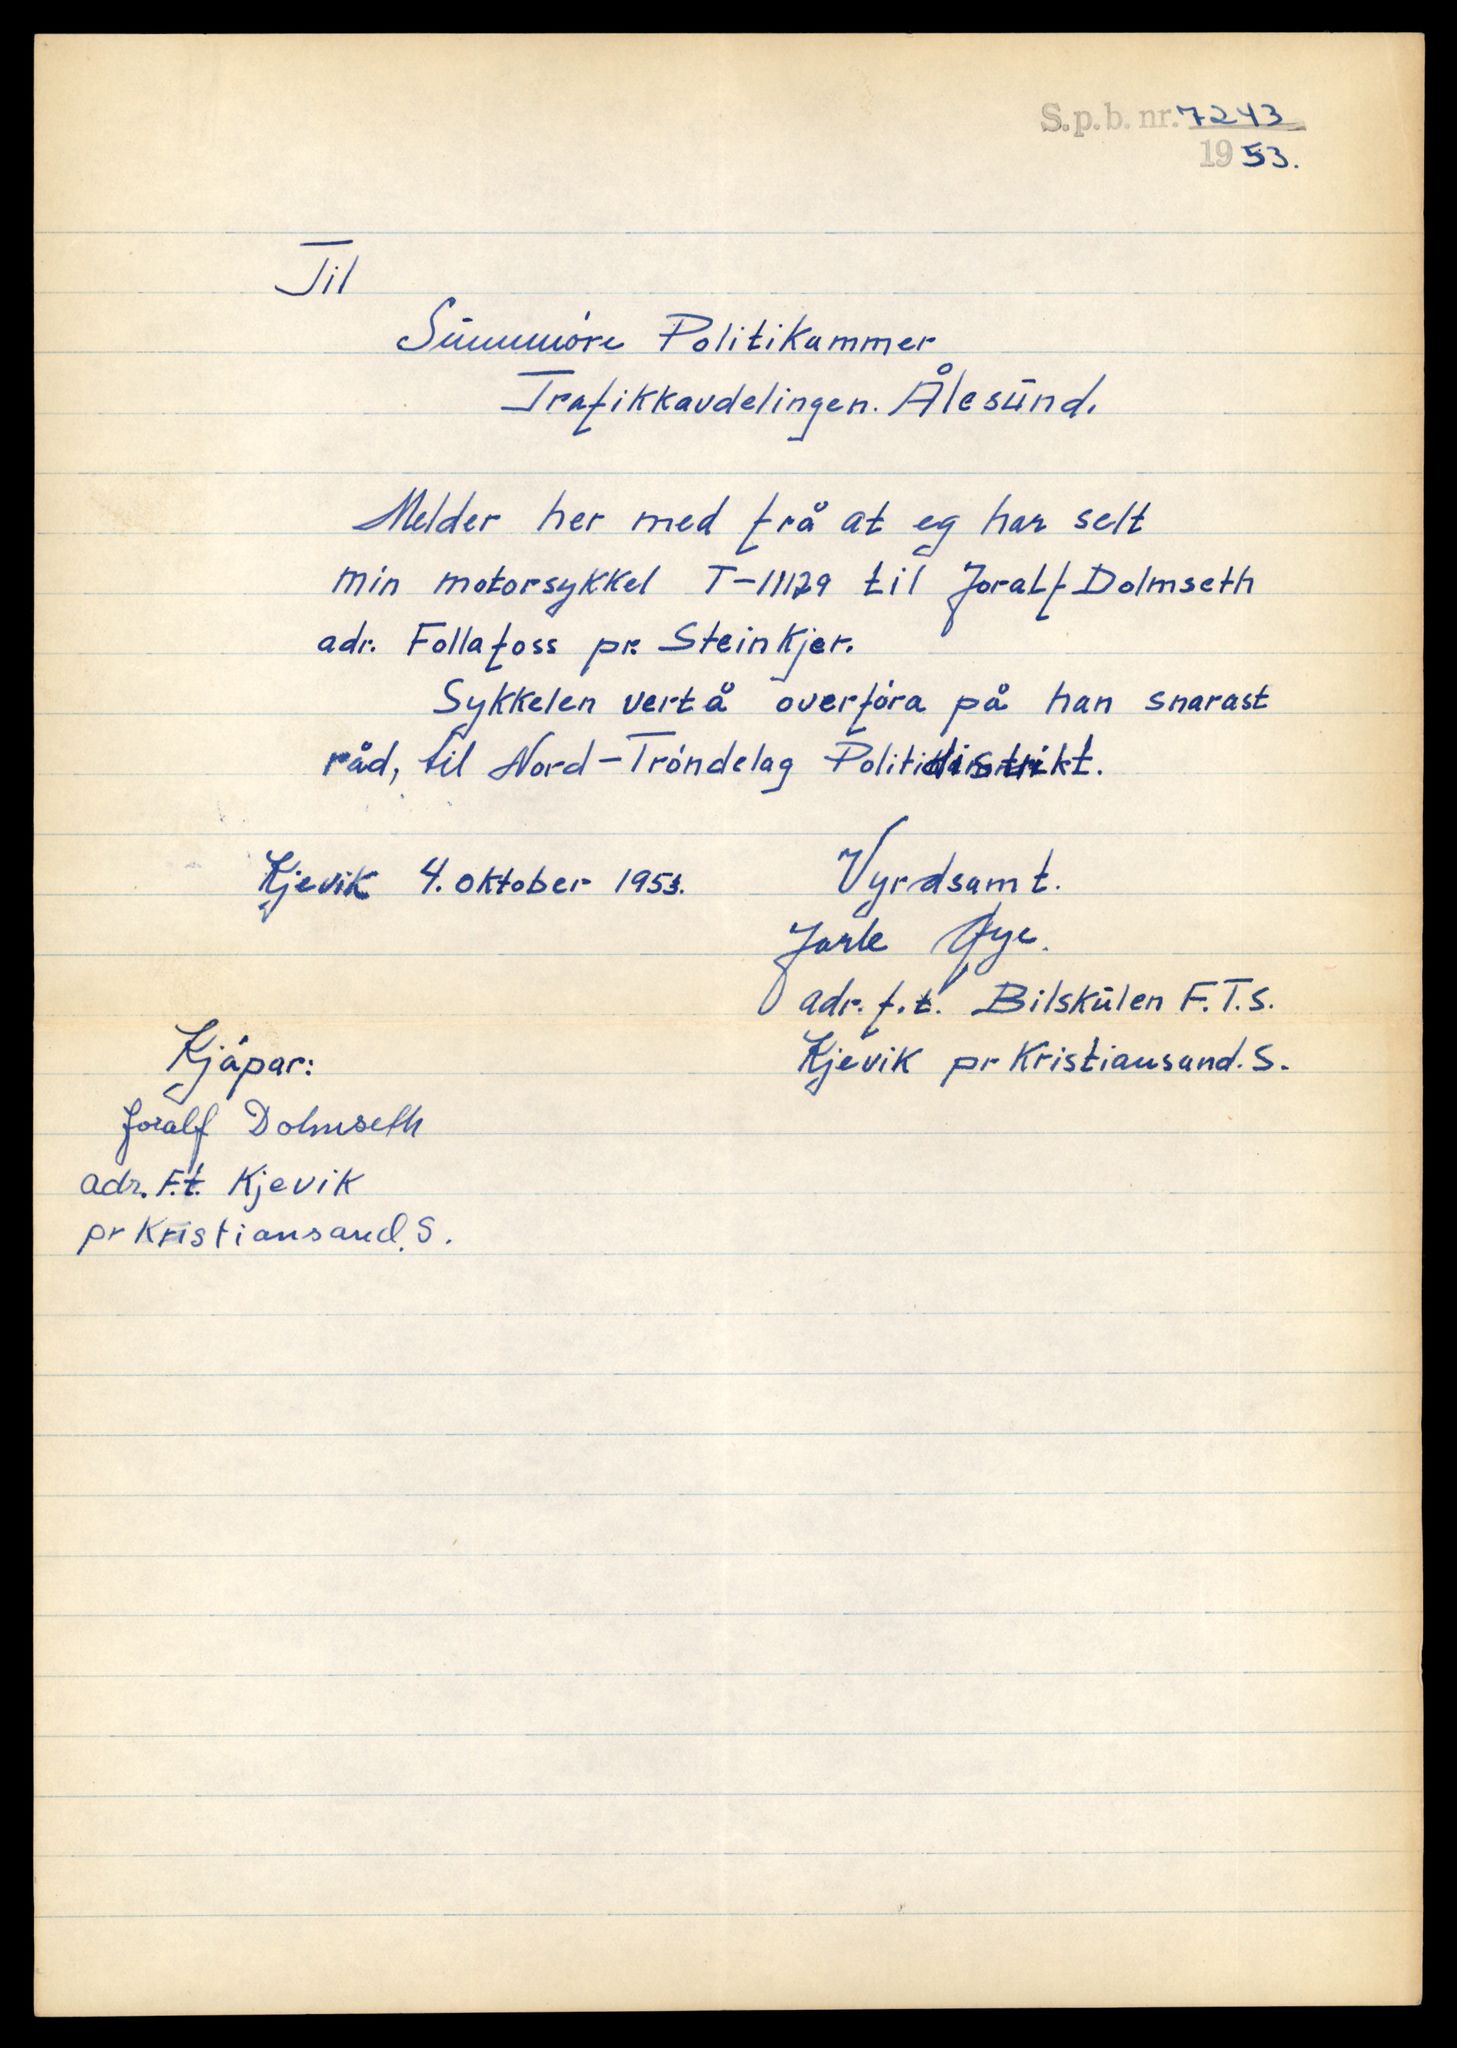 S.p.b. nr. 7243
1953.
Til
Sunnmöre Politikammer
Trafikkavdelingen. Ålesund.
Melder her med frå at eg har selt
min motorsykkel T-11179 til Joralf Dolmseth
adr. Follafoss pr. Steinkjer.
Sykkelen vert å overföra på han snarast
råd, til Nord-Tröndelag Politidistrikt.
Kjevik 4. oktober 1953.
Vyrdsamt.
Jarle Øye.
adr. f.t. Bilskulen F.T.S.
Kjevik pr Kristiansand. S.
Kjöpar:
Joralf Dolmseth
adr. F.t. Kjevik
pr Kristiansand. S.